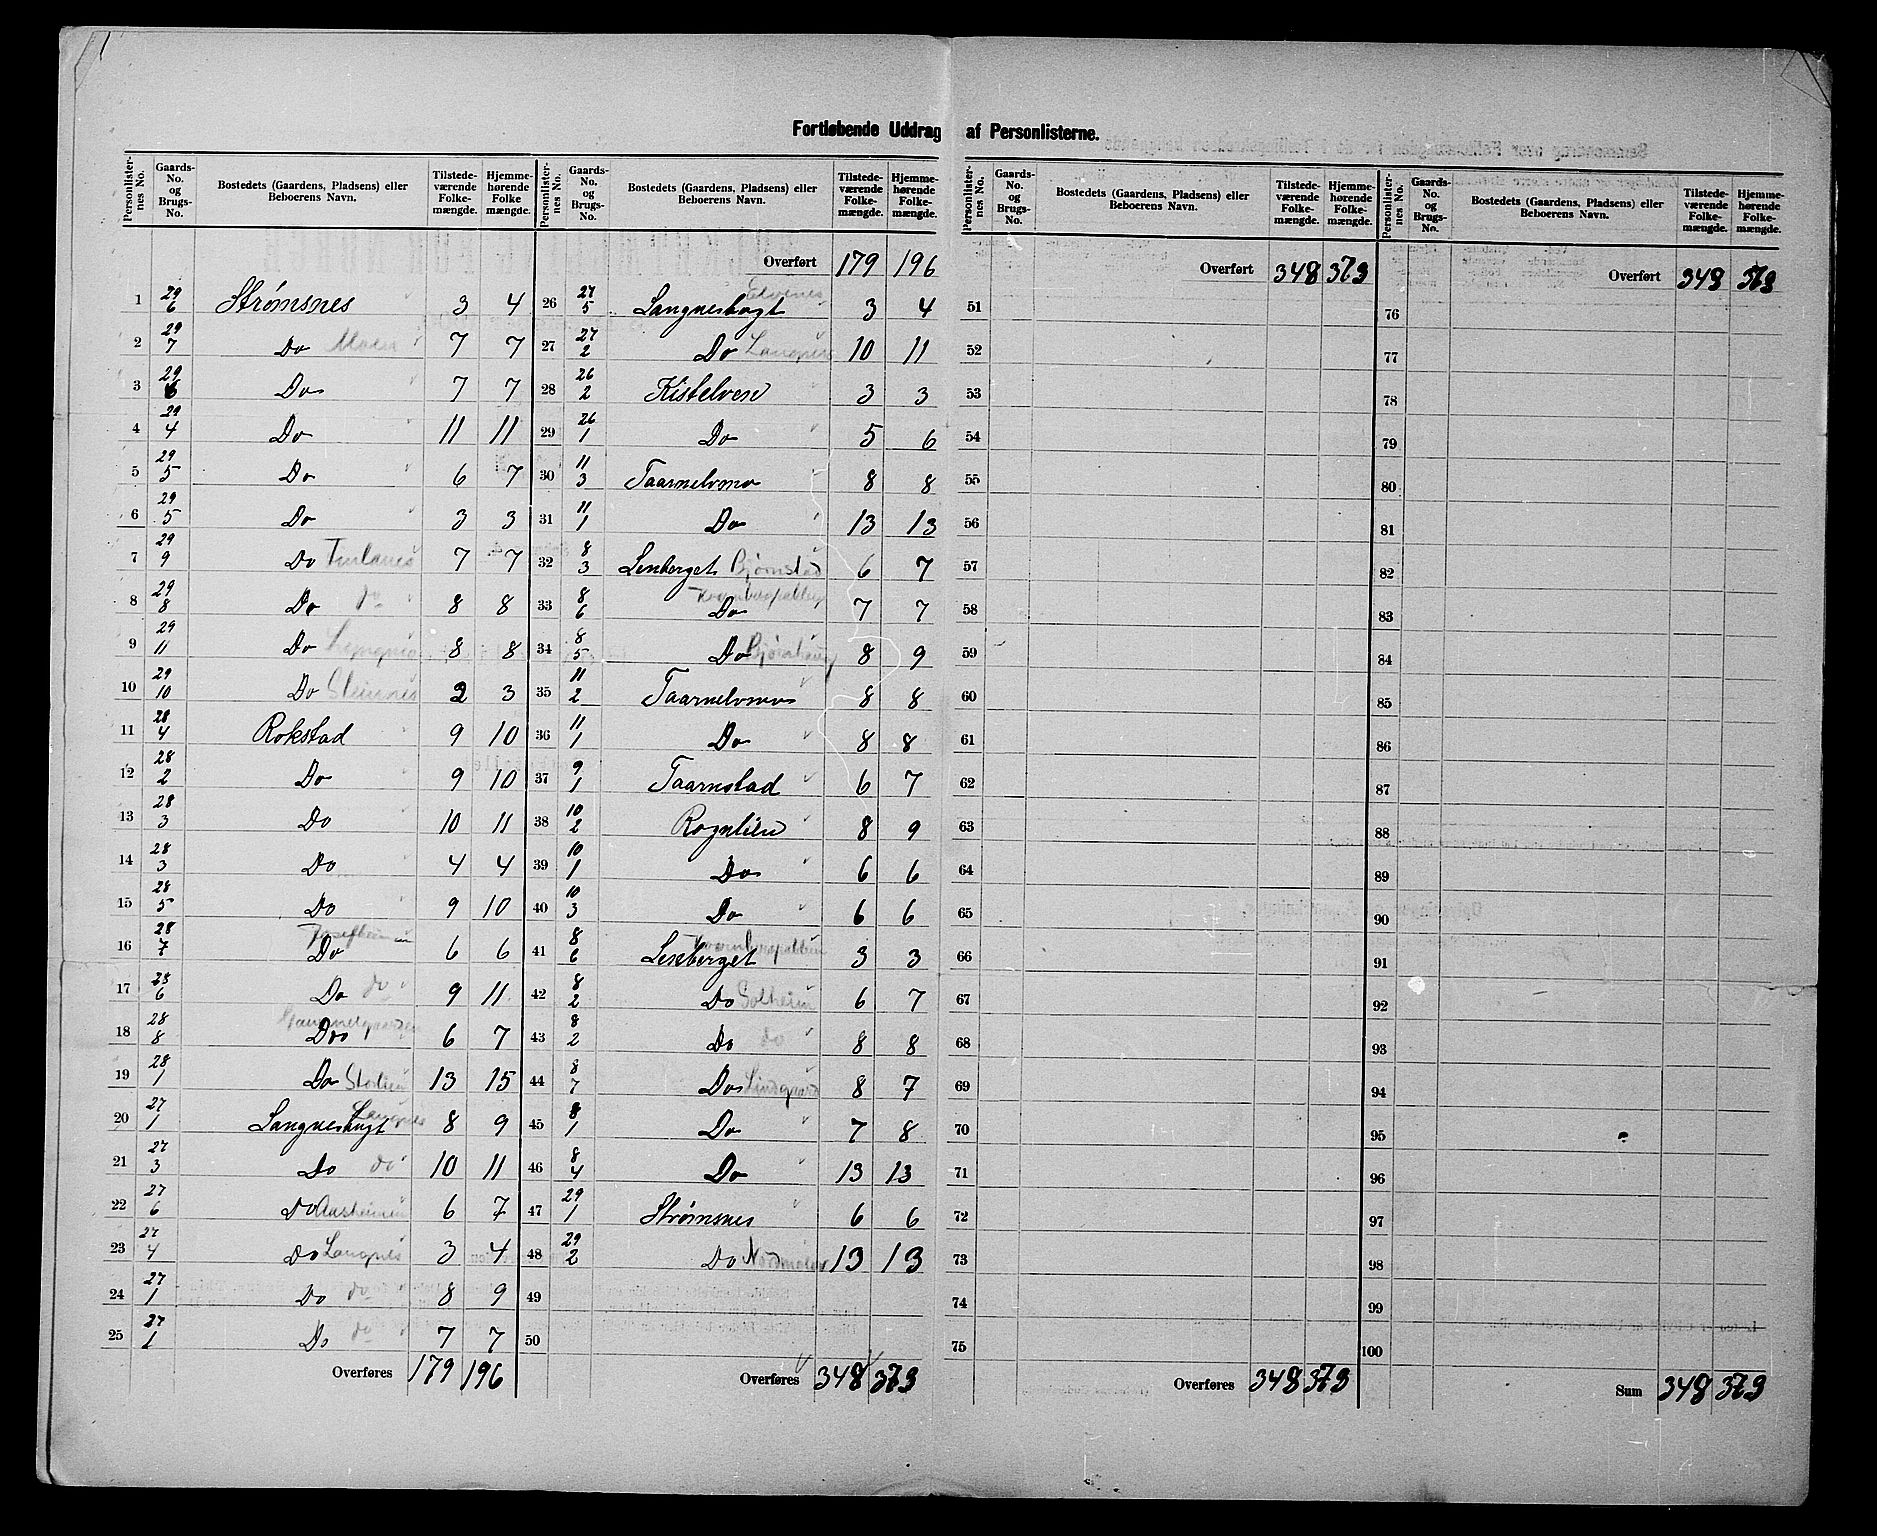 Fortløbende Uddrag af Personlisterne.
Personlister-nes No. Gaards-No. og Brugs-No. Bostedets (Gaardens, Pladsens) eller Beboerens Navn. Tilstede-værende Folke-mængde. Hjemme-hørende Folke mængde.
1 29/6 Strømsnes 3 4
2 29/7 Do Moen 7 7
3 29/6 Do 7 7
4 29/4 Do 11 11
5 29/5 Do 6 7
6 29/5 Do 3 3
7 29/9 Do 7 7
8 29/8 Do do 8 8
9 29/11 Do 8 8
10 29/10 Do Steinnes 2 3
11 28/4 Rokstad 9 10
12 28/2 Do 9 10
13 28/3 Do 10 11
14 28/3 Do 4 4
15 28/5 Do 9 10
16 28/7 Do 6 6
17 28/6 Do do 9 11
18 28/8 Do 6 7
19 28/1 Do Stolien 13 15
20 27/1 Langnesbugt Langnes 8 9
21 27/3 Do do 10 11
22 27/6 Do Aasheim 6 7
23 27/4 Do Langnes 3 4
24 27/1 Do do 8 9
25 27/1 Do do 7 7
Overføres 179 196
Personlister-nes No. Gaards-No. og Brugs-No. Bostedets (Gaardens, Pladsens) eller Beboerens Navn. Tilstede-værende Folke-mængde. Hjemme-hørende Folke-mængde.
Overført 179 196
26 27/5 Langnesbugt Elvenes 3 4
27 27/2 Do Langnes 10 11
28 26/2 Kistelven 3 3
29 26/1 Do 5 6
30 11/3 Taarnelvmo 8 8
31 11/1 Do 13 13
32 8/3 Lenberget Bjørnstad 6 7
33 8/6 Do 7 7
34 8/5 Do Bjørnhaug 8 9
35 11/2 Taarnelvmo 8 8
36 11/1 Do 8 8
37 9/1 Taarnstad 6 7
38 10/2 Rognlien 8 9
39 10/1 Do 6 6
40 10/3 Do 6 6
41 8/6 Lenberget 3 3
42 8/2 Do Solheim 6 7
43 8/2 Do do 8 8
44 8/7 Do Lindgaard 8 7
45 8/1 Do 7 8
46 8/4 Do 13 13
47 29/1 Strømsnes 6 6
48 29/2 Do Nordmoen 13 13
49
50
Overføres 348 373
Personlister-nes No. Gaards-No. og Brugs-No. Bostedets (Gaardens, Pladsens) eller Beboerens Navn. Tilstede-værende Folke-mængde. Hjemme-hørende Folke-mængde.
Overført 348 373
51
52
53
54
55
56
57
58
59
60
61
62
63
64
65
66
67
68
69
70
71
72
73
74
75
Overføres 348 373
Personlister-nes No. Gaards-No. og Brugs-No. Bostedets (Gaardens, Pladsens) eller Beboerens Navn. Tilstede-værende Folke-mængde. Hjemme-hørende Folke-mængde.
Overført 348 373
76
77
78
79
80
81
82
83
84
85
86
87
88
89
90
91
92
93
94
95
96
97
98
99
100
Sum 348 373